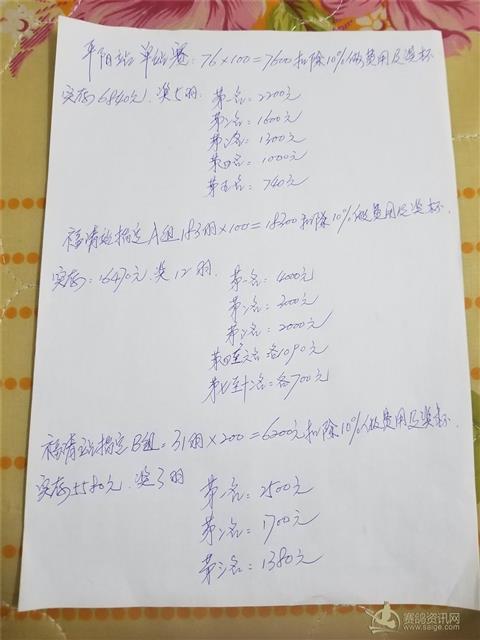 平阳站单站赛:76×100=7600扣除10%做费用及奖杯
实存6840元.奖5羽:第一名:2200元
第二名:1600元
第三名:1300元
第四名:1000元
第五名:740元
福清站指定A组183羽×100=18300扣除10%做费用及奖杯.
实存:16470元.奖12羽.第一名:4000元
第二名:3000元
第三名:2000元
第四至六名:各1090元
第七至十二名:各700元
福清站指定B组:31羽×200=6200元扣除10%做费用及奖杯.
实存5580元.奖3羽 第一名:2500元
第二名:1700元
第三名:1380元
赛鸽资讯网
www.saige.com